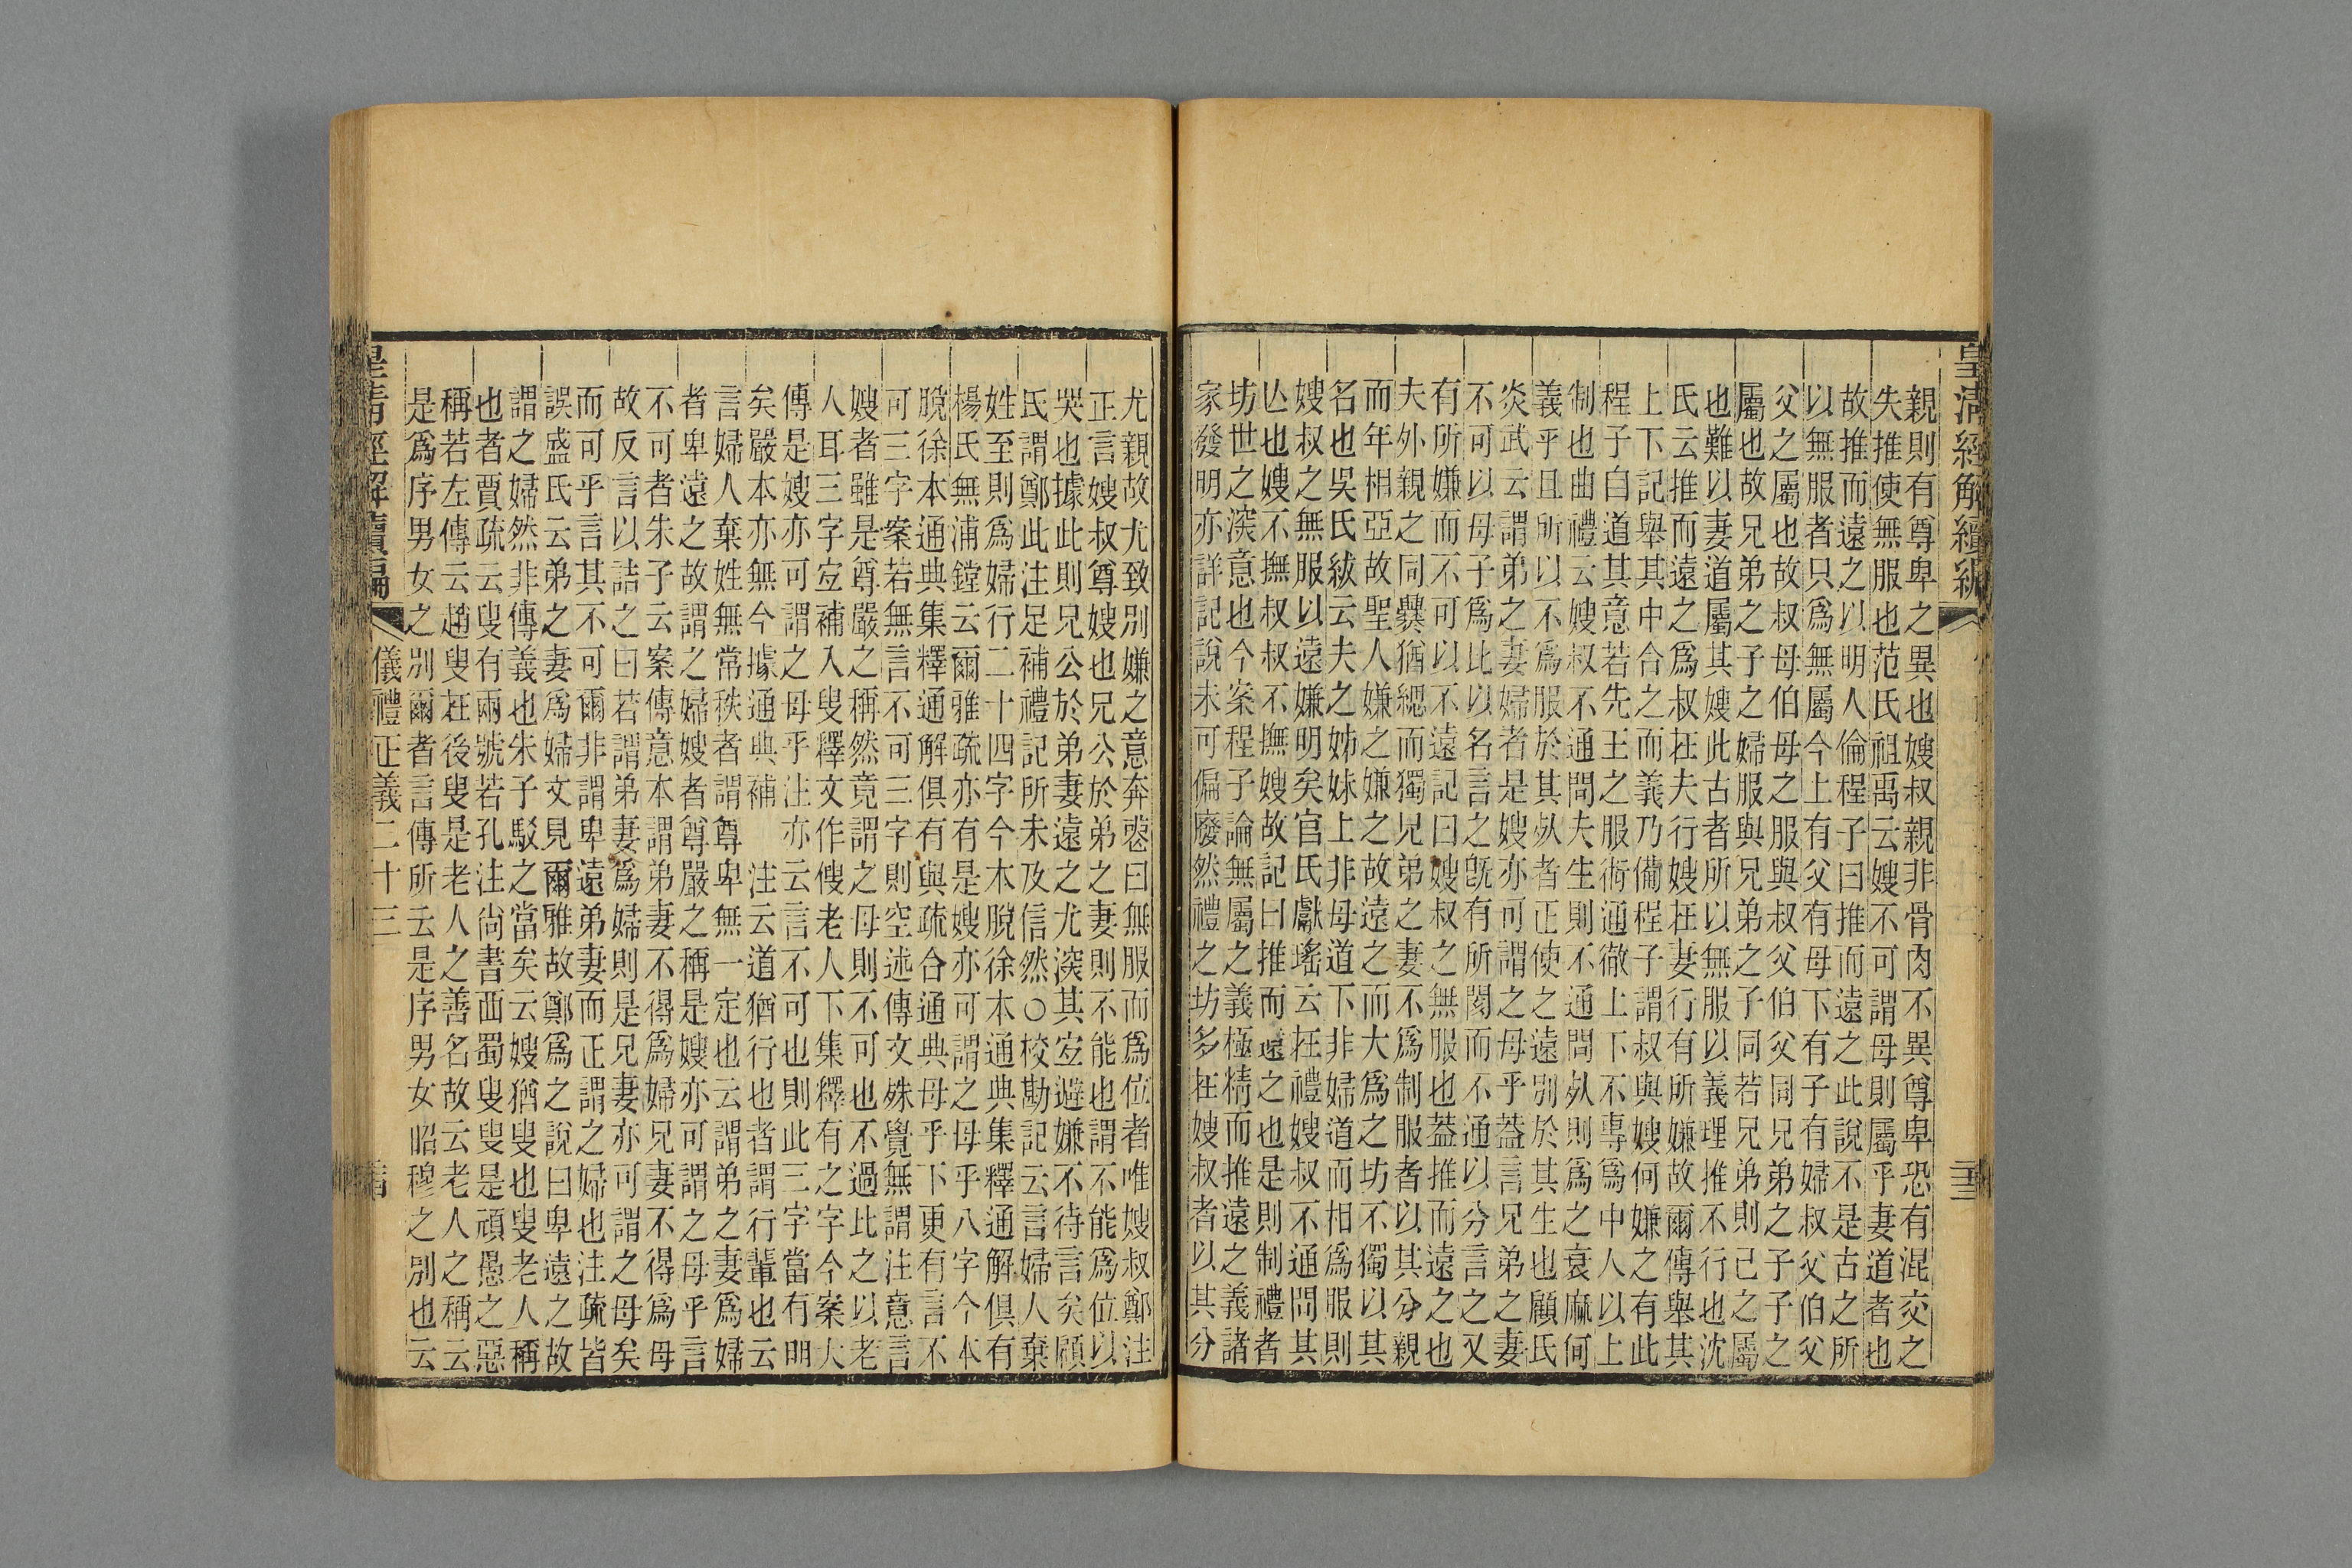 皇清經解續編
親則有尊卑之異也嫂叔親非骨肉不異尊卑恐有混交之
失推使無服也范氏祖禹云嫂不可謂母則屬乎妻道者也
故推而遠之以明人倫程子曰推而遠之此說不是古之所
以無服者只爲無屬今上有父有母下有子有婦叔父伯父
父之屬也故叔母伯母之服與叔父伯父同兄弟之子子之
屬也故兄弟之子之婦服與兄弟之子同若兄弟則己之屬
也難以妻道屬其嫂此古者所以無服以義理推不行也沈
氏云推而遠之爲叔在夫行嫂在妻行有所嫌故爾傳舉其
上下記舉其中合之而義乃備程子謂叔與嫂何嫌之有此
程子自道其意若先王之服術通徹上下不專爲中人以上
制也曲禮云嫂叔不通問夫生則不通問歿則爲之衰麻何
義乎且所以不爲服於其歿者正使之遠別於其生也顧氏
炎武云謂弟之妻婦者是嫂亦可謂之母乎葢言兄弟之妻
不可以母子爲比以名言之旣有所閡而不通以分言之又
有所嫌而不可以不遠記曰嫂叔之無服也葢推而遠之也
夫外親之同爨猶緦而獨兄弟之妻不爲制服者以其分親
而年相亞故聖人嫌之嫌之故遠之而大爲之坊不獨以其
名也吳氏紱云夫之姊妹上非母道下非婦道而相爲服則
嫂叔之無服以遠嫌明矣官氏獻瑤云在禮嫂叔不通問其
亾也嫂不撫叔叔不撫嫂故記曰推而遠之也是則制禮者
坊世之深意也今案程子論無屬之義極精而推遠之義諸
家發明亦詳記說未可偏廢然禮之坊多在嫂叔者以其分
尤親故尤致別嫌之意奔喪曰無服而爲位者唯嫂叔鄭注
正言嫂叔尊嫂也兄公於弟之妻則不能也謂不能爲位以
哭也據此則兄公於弟妻遠之尤深其宐避嫌不待言矣顧
氏謂鄭此注足補禮記所未及信然○校勘記云言婦人棄
姓至則爲婦行二十四字今本脫徐本通典集釋通解俱有
楊氏無浦鏜云爾雅疏亦有是嫂亦可謂之母乎八字今本
脫徐本通典集釋通解俱有與疏合通典母乎下更有言不
可三字案若無言不可三字則空述傳文殊覺無謂注意言
嫂者雖是尊嚴之稱然竟謂之母則不可也不過比之以老
人耳三字宐補入叟釋文作傁老人下集釋有之字今案大
傳是嫂亦可謂之母乎注亦云言不可也則此三字當有明
矣嚴本亦無今據通典補 注云道猶行也者謂行輩也云
言婦人棄姓無常秩者謂尊卑無一定也云謂弟之妻爲婦
者卑遠之故謂之婦嫂者尊嚴之稱是嫂亦可謂之母乎言
不可者朱子云案傳意本謂弟妻不得爲婦兄妻不得爲母
故反言以詰之曰若謂弟妻爲婦則是兄妻亦可謂之母矣
而可乎言其不可爾非謂卑遠弟妻而正謂之婦也注疏皆
誤盛氏云弟之妻爲婦文見爾雅故鄭爲之說曰卑遠之故
謂之婦然非傳義也朱子駁之當矣云嫂猶叟也叟老人稱
也者賈疏云叟有兩號若孔注尙書西蜀叟叟是頑愚之惡
稱若左傳云趙叟在後叟是老人之善名故云老人之稱云
是爲序男女之別爾者言傳所云是序男女昭穆之別也云
皇淸經解續編
儀禮正義二十三